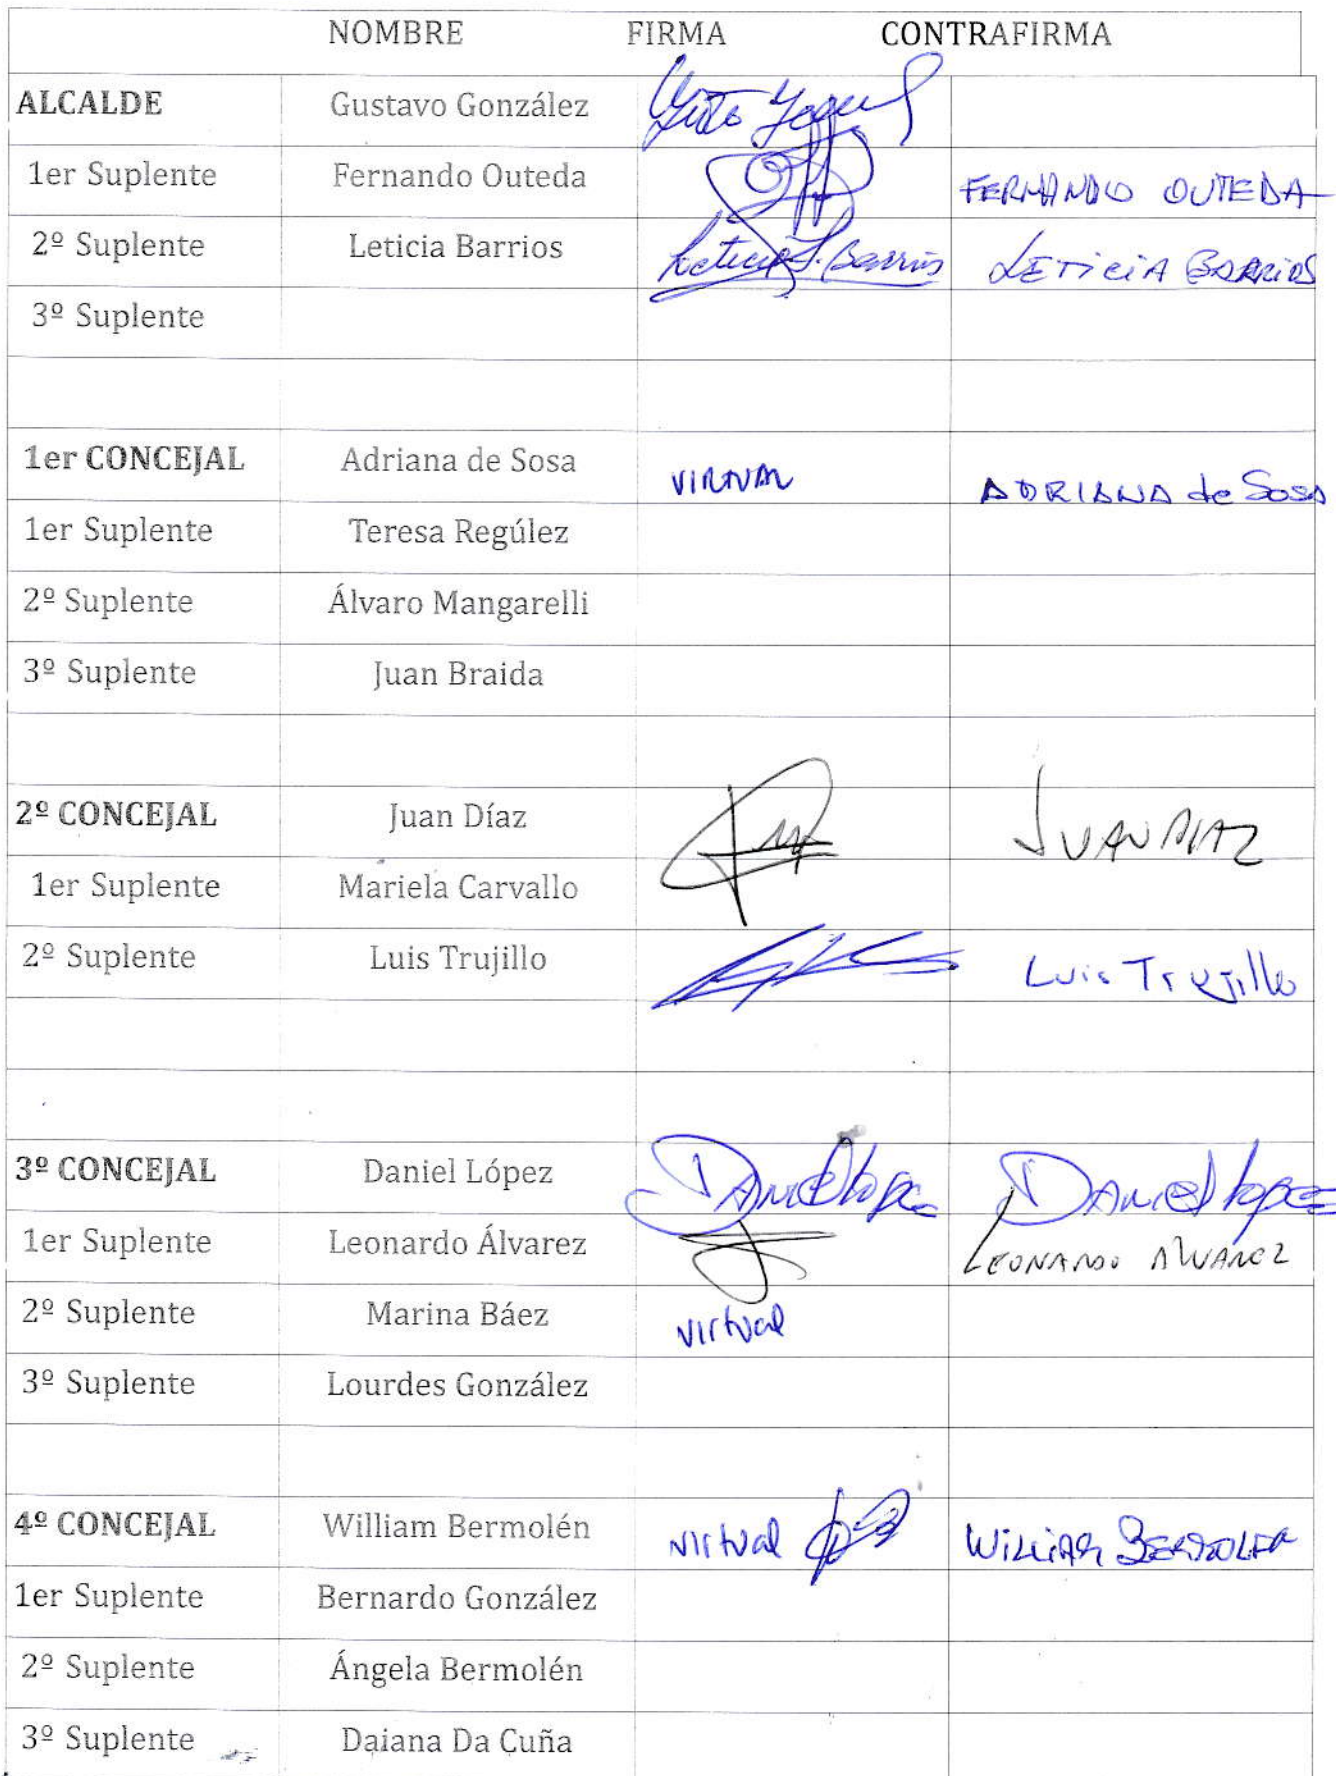 NOMBRE FIRMA CONTRAFIRMA
ALCALDE Gustavo González
1er Suplente Fernando Outeda FERNANDO OUTEDA
2º Suplente Leticia Barrios Leticia J. Barrios LETICIA BARRIOS
3º Suplente
1er CONCEJAL Adriana de Sosa VIRTUAL ADRIANA de SOSA
1er Suplente Teresa Regúlez
2º Suplente Álvaro Mangarelli
3º Suplente Juan Braida
2º CONCEJAL Juan Díaz JUAN DIAZ
1er Suplente Mariela Carvallo
2º Suplente Luis Trujillo Luis Trujillo
3º CONCEJAL Daniel López Daniel Lopez Daniel Lopez
1er Suplente Leonardo Álvarez LEONARDO ALVAREZ
2º Suplente Marina Báez virtual
3º Suplente Lourdes González
4º CONCEJAL William Bermolén virtual WILLIAM BERMOLEN
1er Suplente Bernardo González
2º Suplente Ángela Bermolén
3º Suplente Daiana Da Cuña